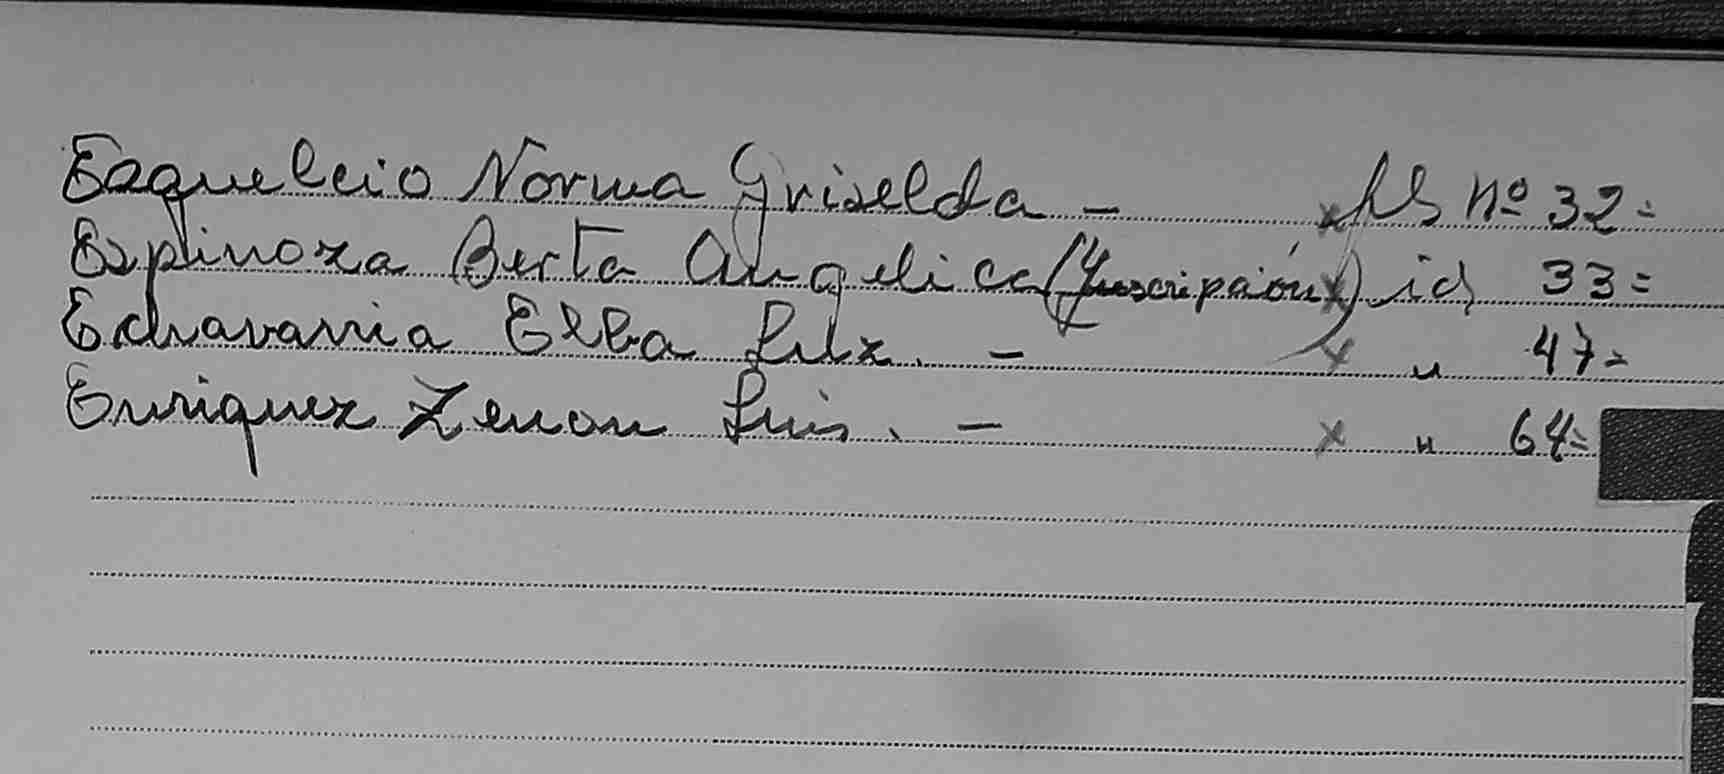 Norma Griselda - x nº 32=
Espinoza Berta Angelica (Inscripción x) id 33=
Echavarria Elba Luz. - x " 47=
Enriquez Zenon Luis. - x " 64=